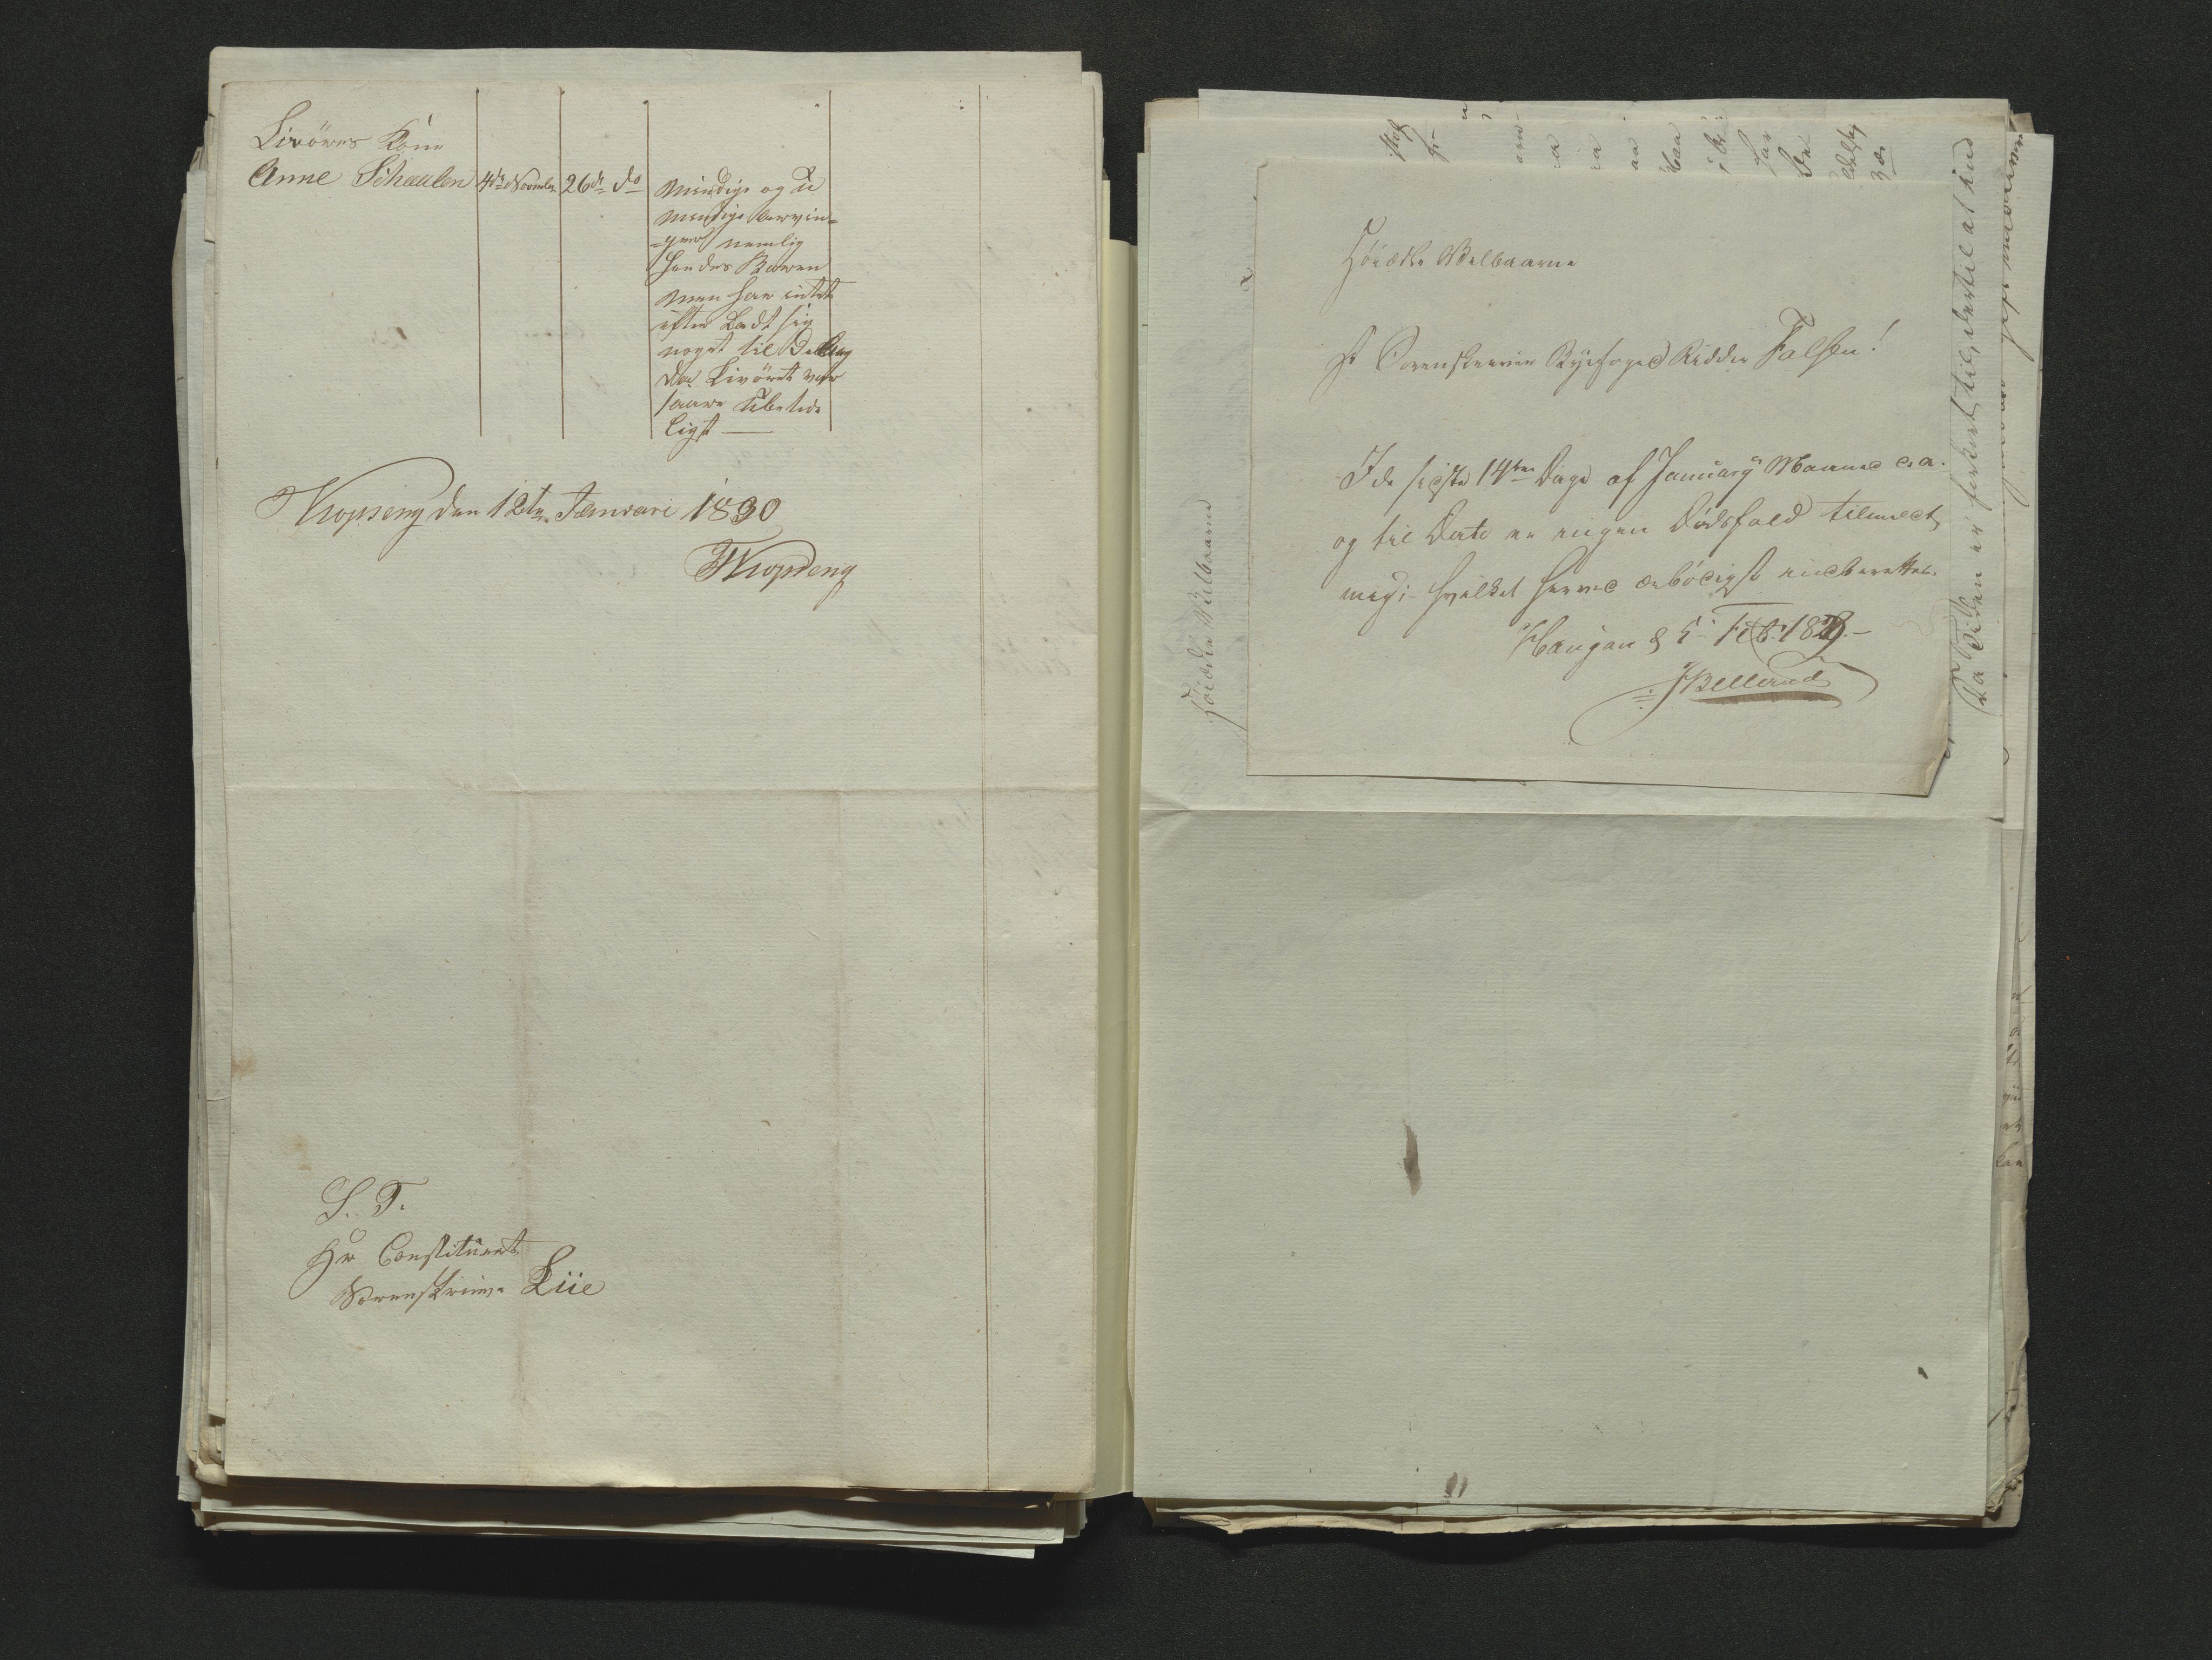 Livöres Kone
Anne Schaulen 4de November 26de do
Mindige og U
mindige arvin=
=ger nemlig
hendes Baaren
men har intet
efter Ladt sig
noget til Deeling
da Livöret var
saare Ubetide
ligt —
Kropseng den 12te Januari 1830
Kropseng
S. T.
Hr Constitueret
Sorenskriver Liie
Høiædle Velbaarne
Hr Sorenskriver Byefoged Ridder Falsen!
I de sidste 14ten Dage af January Maaned d. a.
og til Dato er ingen Dødsfald tilmeldt
mig; hvilket herved ærbødigst indberettes.
Haugan d 5 Feb: 1828.
Høiædle Velbaarne